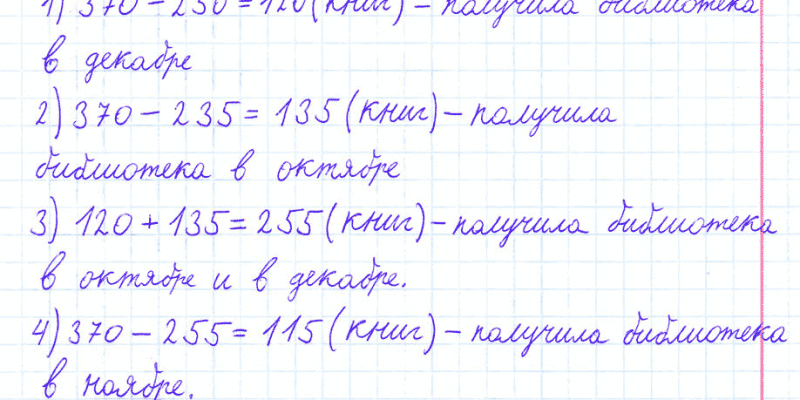 1) 370 - 250 = 120 (книг) - получила библиотека
в декабре
2) 370 - 235 = 135 (книг) - получила
библиотека в октябре
3) 120 + 135 = 255 (книг) - получила библиотека
в октябре и в декабре.
4) 370 - 255 = 115 (книг) - получила библиотека
в ноябре.